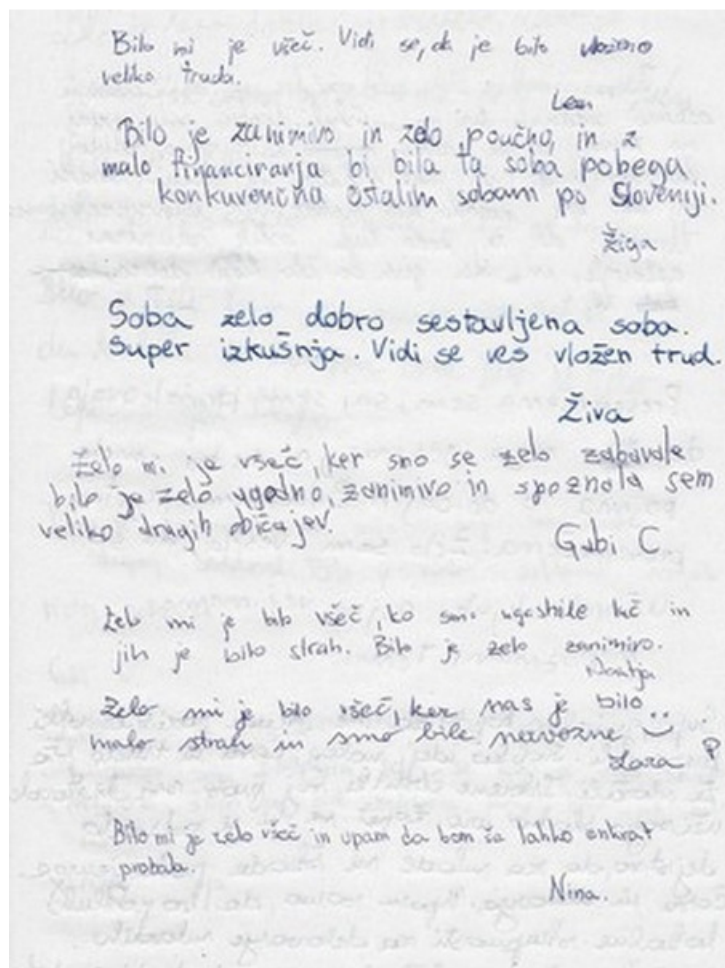 Bilo mi je všeč. Vidi se, da je bilo vloženo
veliko truda.
Bilo je zanimivo in zelo poučno, in z
malo financiranja bi bila ta soba pobega
konkurenčna ostalim sobam po Sloveniji.
Žiga
Soba zelo dobro sestavljena soba.
Super izkušnja. Vidi se ves vložen trud.
Živa
Zelo mi je všeč, ker smo se zelo zabavale
bilo je zelo ugodno, zanimivo in spoznala sem
veliko drugih običajev.
Gabi C
Zelo mi je bilo všeč, ko smo ugasnile luč in
jih je bilo strah. Bilo je zelo zanimivo.
Zelo mi je bilo všeč, ker nas je bilo
malo strah in smo bile nervozne
Lara
Bilo mi je zelo všeč in upam da bom še lahko enkrat
probala.
Nina.